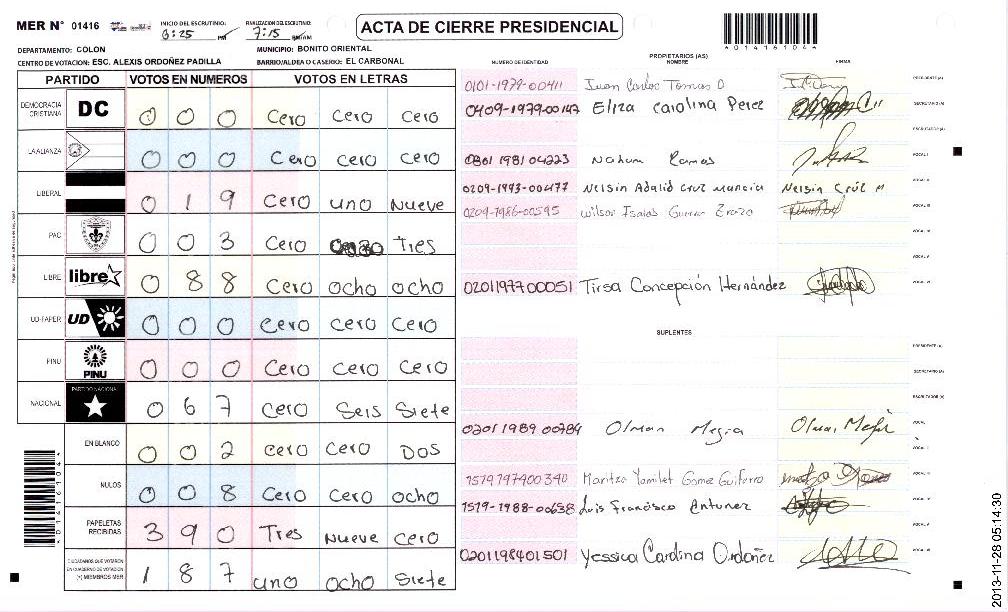 MER N° 01416 INICIO DEL ESCRUTINIO: 6:25 PM FINALIZACION DEL ESCRUTINIO: 7:15 ACTA DE CIERRE PRESIDENCIAL
DEPARTAMENTO: COLON MUNICIPIO: BONITO ORIENTAL
CENTRO DE VOTACION: ESC. ALEXIS ORDOÑEZ PADILLA BARRIO/ALDEA O CASERIO: EL CARBONAL
PARTIDO VOTOS EN NUMEROS VOTOS EN LETRAS
DEMOCRACIA CRISTIANA DC 0 0 0 Cero Cero Cero
LA ALIANZA 0 0 0 Cero Cero Cero
LIBERAL 0 1 9 Cero uno Nueve
PAC 0 0 3 Cero Tres
LIBRE libre 0 8 8 Cero ocho ocho
UD-FAPER UD 0 0 0 Cero Cero Cero
PINU PINU 0 0 0 Cero Cero Cero
NACIONAL PARTIDO NACIONAL 0 6 7 Cero Seis Siete
EN BLANCO 0 0 2 Cero Cero Dos
NULOS 0 0 8 Cero Cero ocho
PAPELETAS RECIBIDAS 3 9 0 Tres Nueve Cero
CIUDADANOS QUE VOTARON EN CUADERNO DE VOTACION (+) MIEMBROS MER 1 8 7 uno ocho Siete
PROPIETARIOS (AS)
NUMERO DE IDENTIDAD NOMBRE FIRMA
0101-1979-00411 Juan Carlos Tomas D PRESIDENTE (A)
0409-1979-00147 Eliza Carolina Perez SECRETARIO (A)
ESCRUTADOR (A)
0801 1981 04223 Nahum Ramos VOCAL I
0209-1993-00477 Nelsin Adalid Cruz Mancia Nelsin Cruz M VOCAL II
0209-1986-00595 Wilson Isaias Guerra Erazo VOCAL III
VOCAL IV
VOCAL V
0201197700051 Tirsa Concepción Hernández VOCAL VI
SUPLENTES
PRESIDENTE (A)
SECRETARIO (A)
ESCRUTADOR (A)
0201 1989 00784 Olman Mejia Olman Mejia VOCAL I
VOCAL II
1519797400340 Maritza Yamilet Gomez Guifarro VOCAL III
1519-1988-00638 Luis Francisco Antunez VOCAL IV
VOCAL V
0201198401501 Yessica Carolina Ordoñez VOCAL VI
0 1 4 1 6 1 0 4
2013-11-28 05:14:30